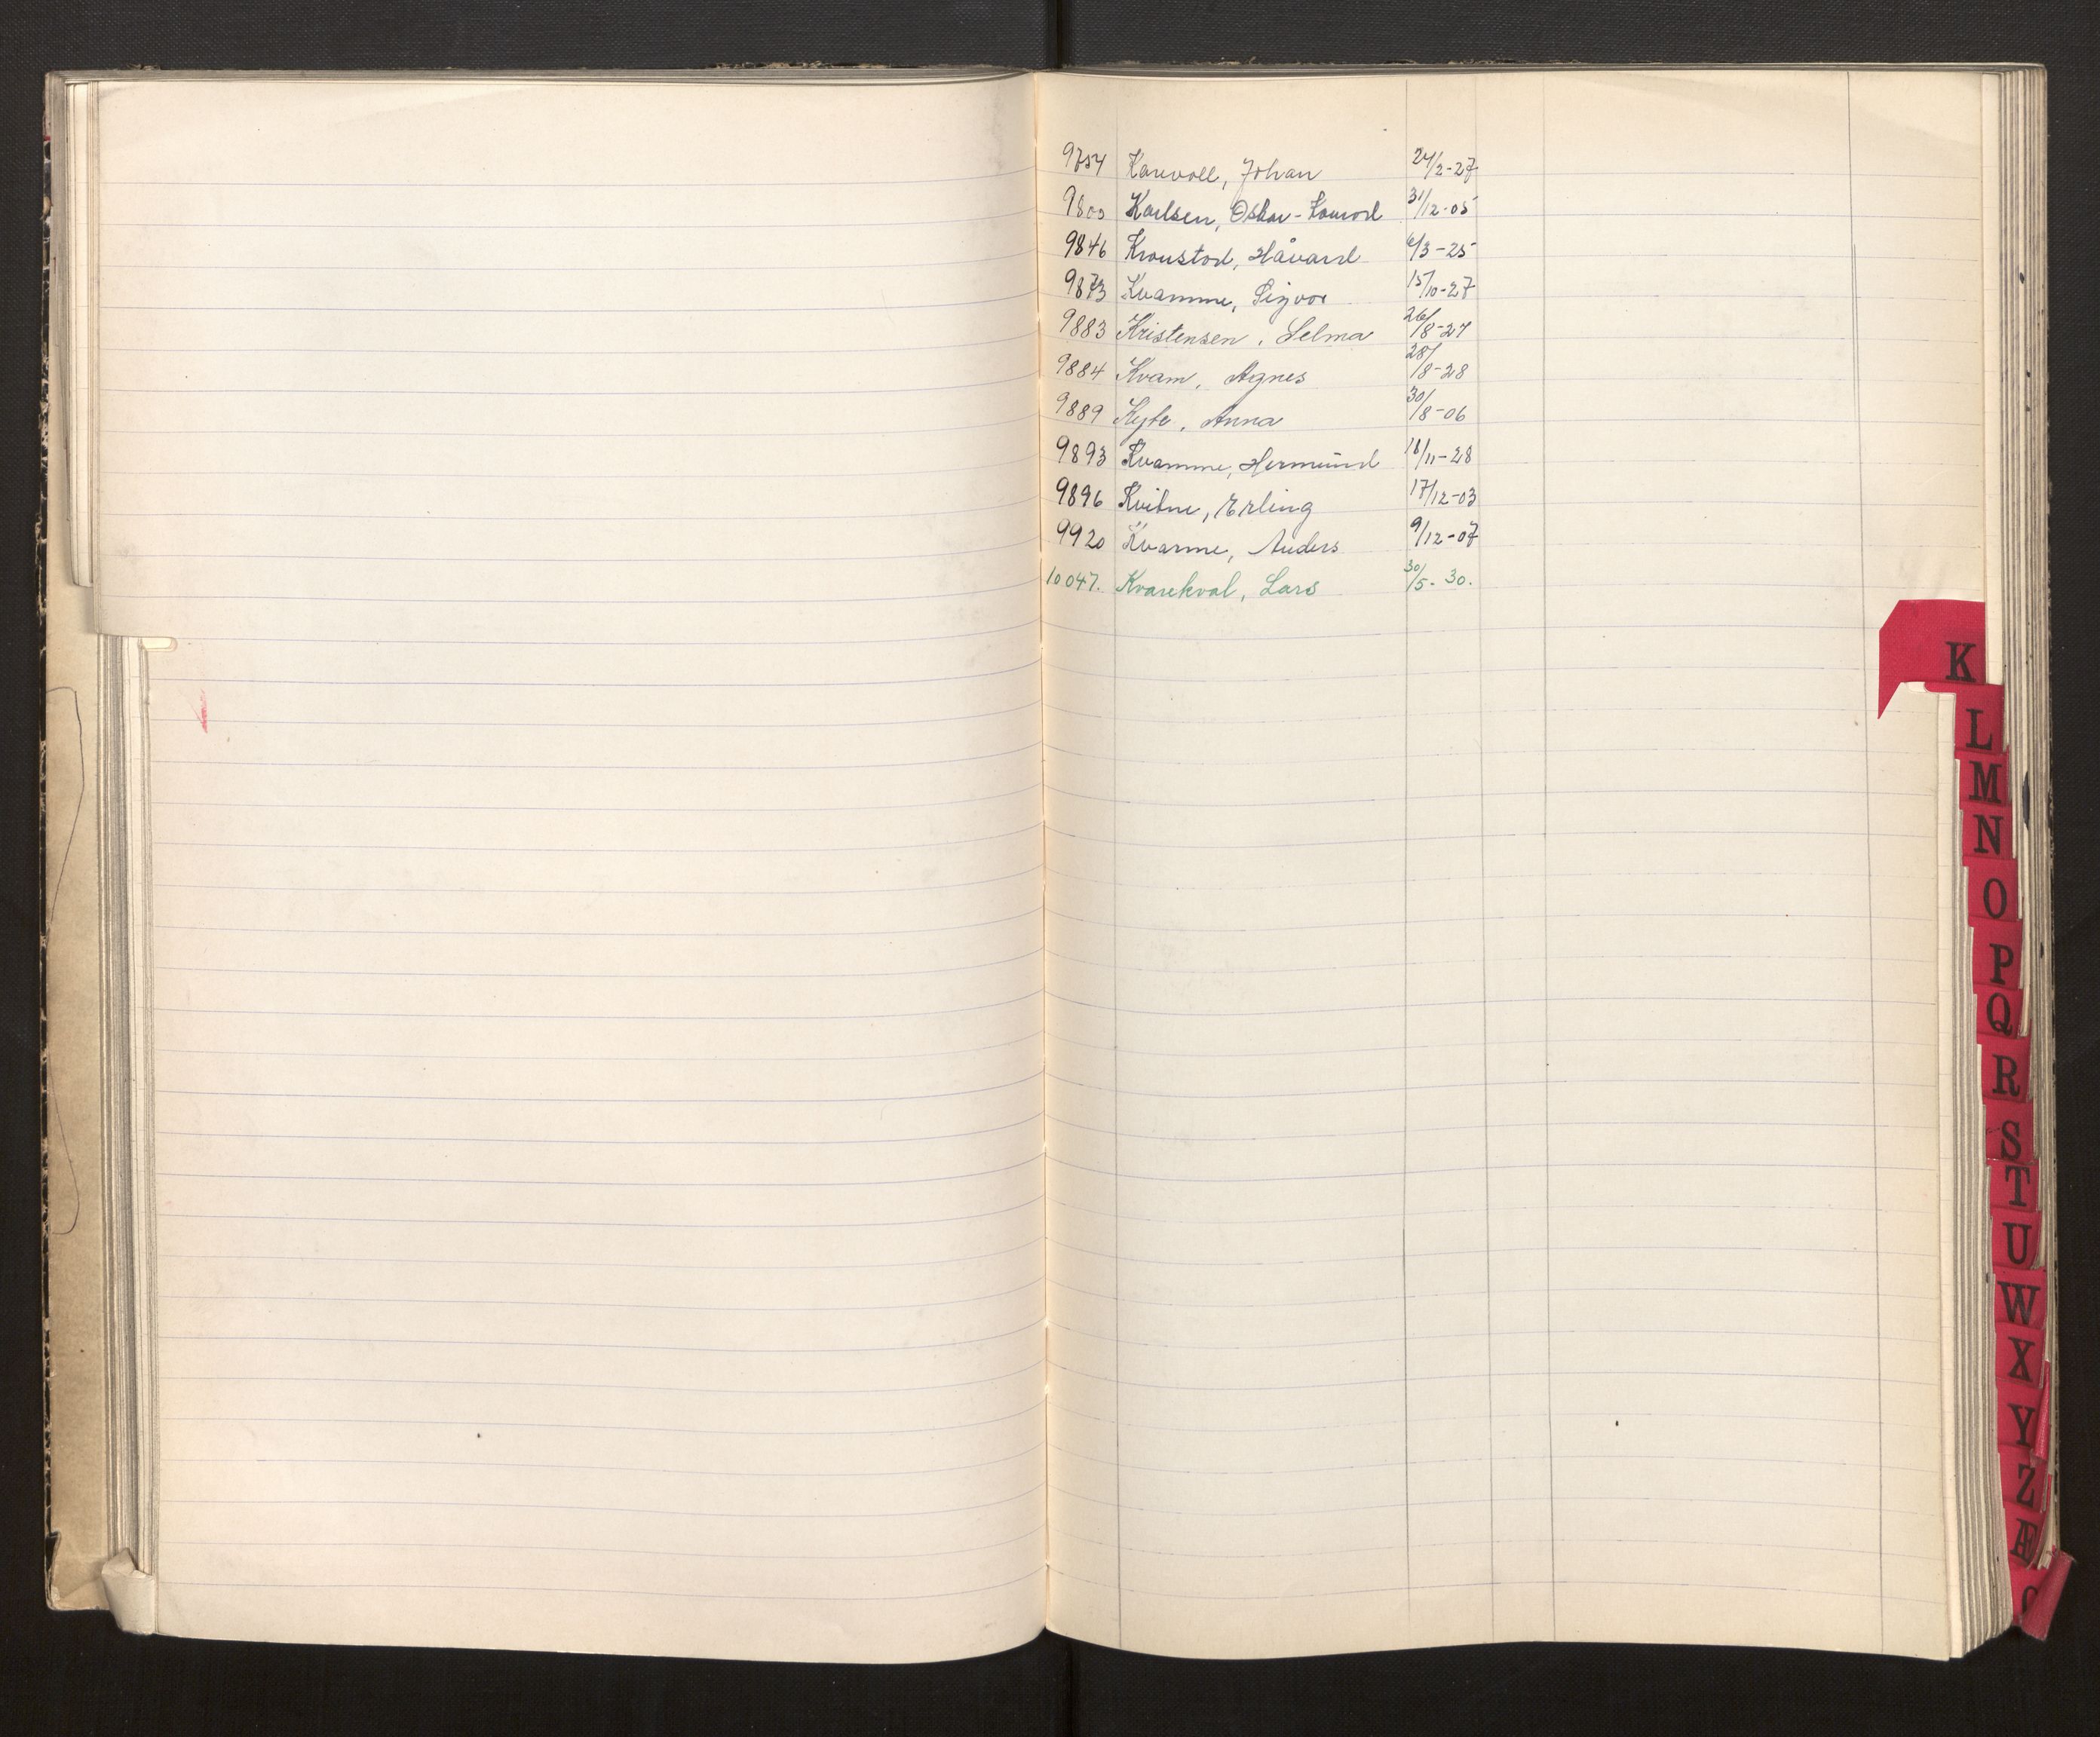 9754 Karvoll, Johan 24/2-27
9800 Karlsen, Oskar-Konrad 31/12-05
9846 Kronstad, Håvard 6/3-25
9873 Kvamme, Sigvor 15/10-27
9883 Kristensen, Selma 26/8-27
9884 Kvam, Agnes 28/8-28
9889 Kyte, Anna 30/8-06
9893 Kvamme, Hermund 18/11-28
9896 Kvitne, Erling 17/12-03
9920 Kvarme, Anders 9/12-07
10047. Kvarekval, Lars 30/5-30.
K
L
M
N
O
P
Q
R
S
T
U
W
X
Y
Z
Æ